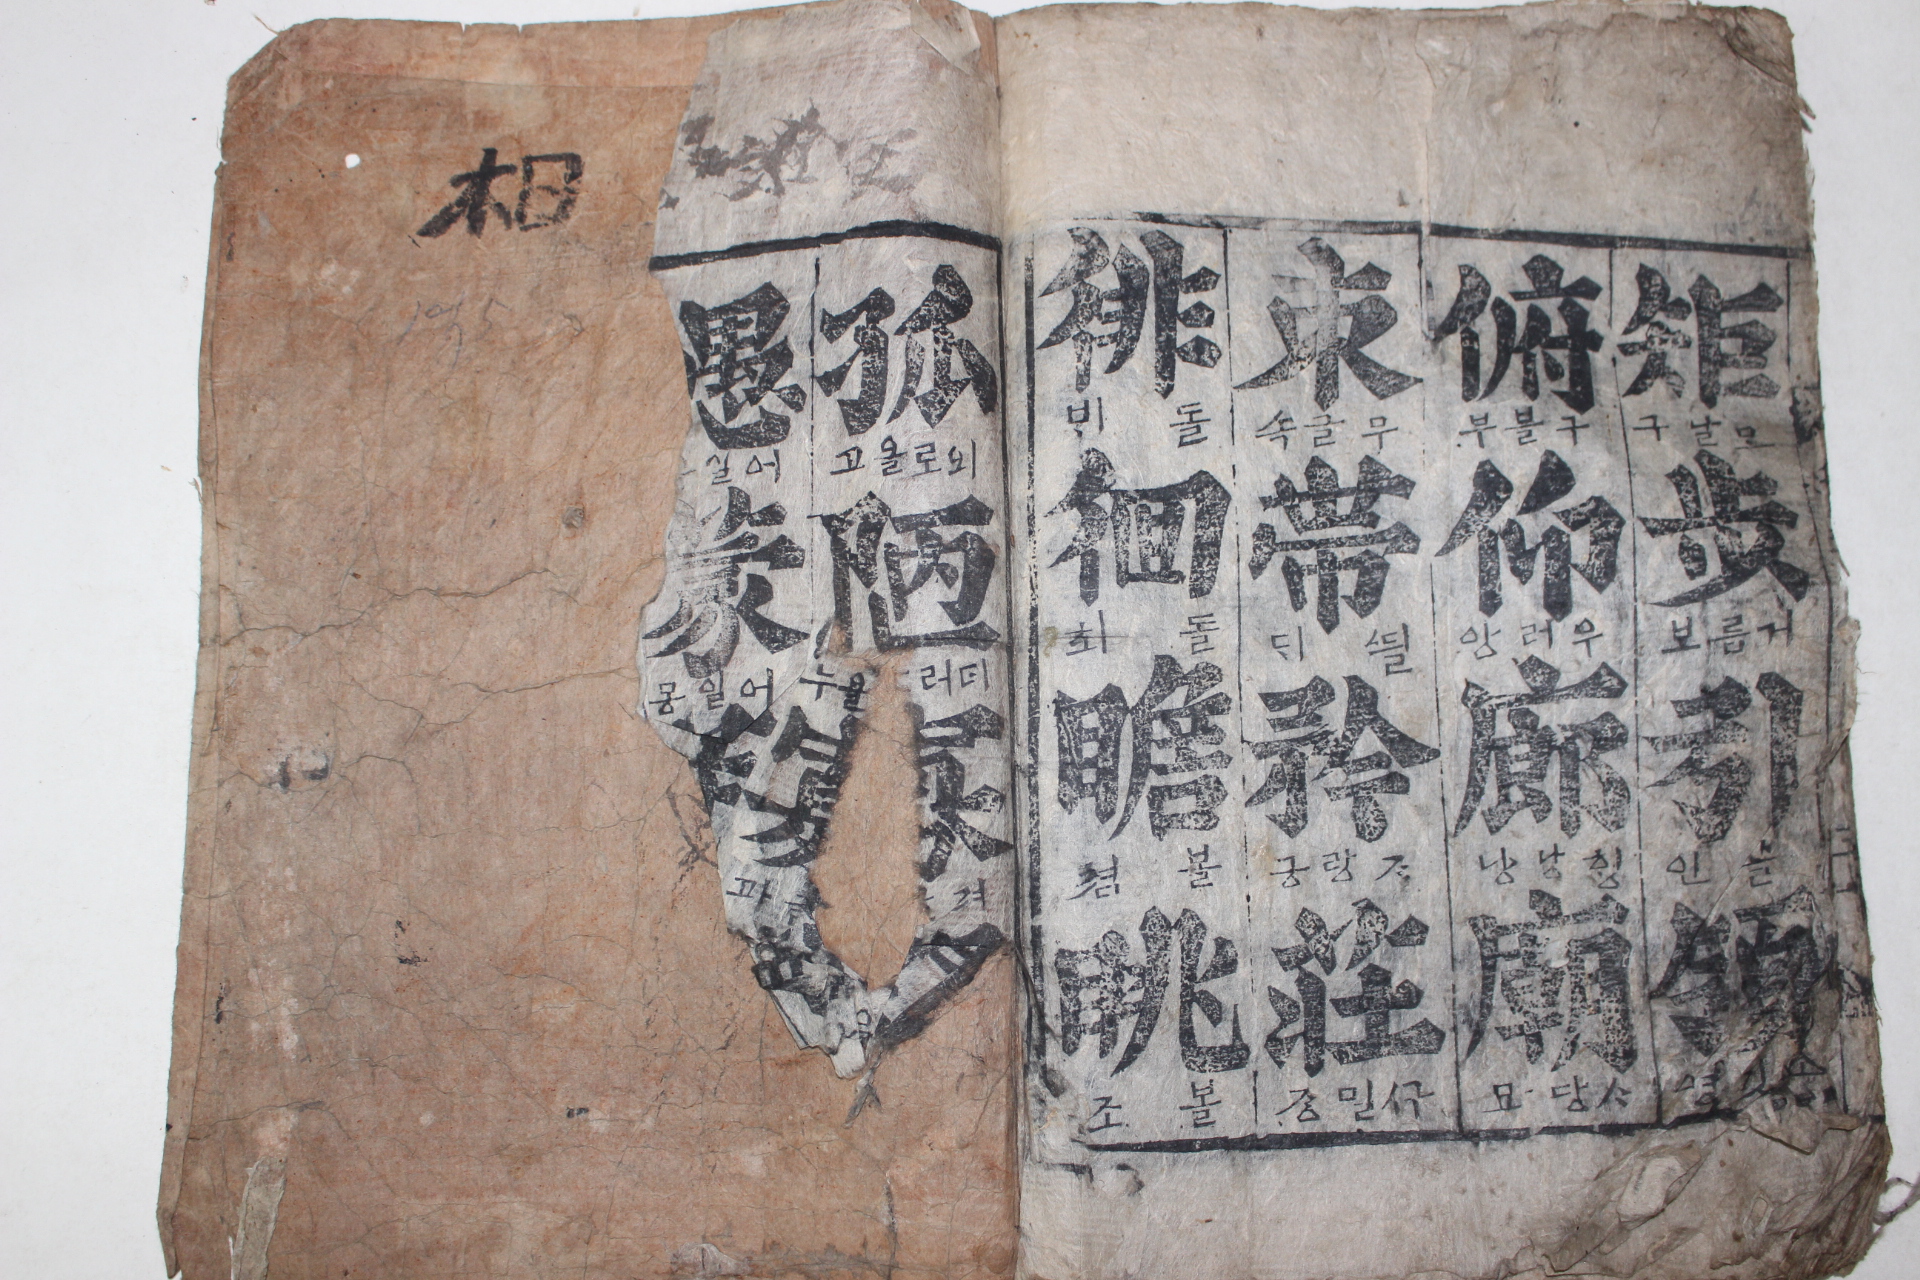 矩 모날구 步 거름보 引 늘인 領
俯 구불부 仰 우러앙 廊 힝낭낭 廟 ᄉᆞ당묘
束 무글속 帶 ᄯᅴᄃᆡ 矜 ᄌᆞ랑긍 莊 ᄭᅮ밀장
徘 돌빈 徊 돌회 瞻 볼쳠 眺 볼조
孤 외로올고 陋 더러울누 寡
愚 어 蒙 어일몽
相